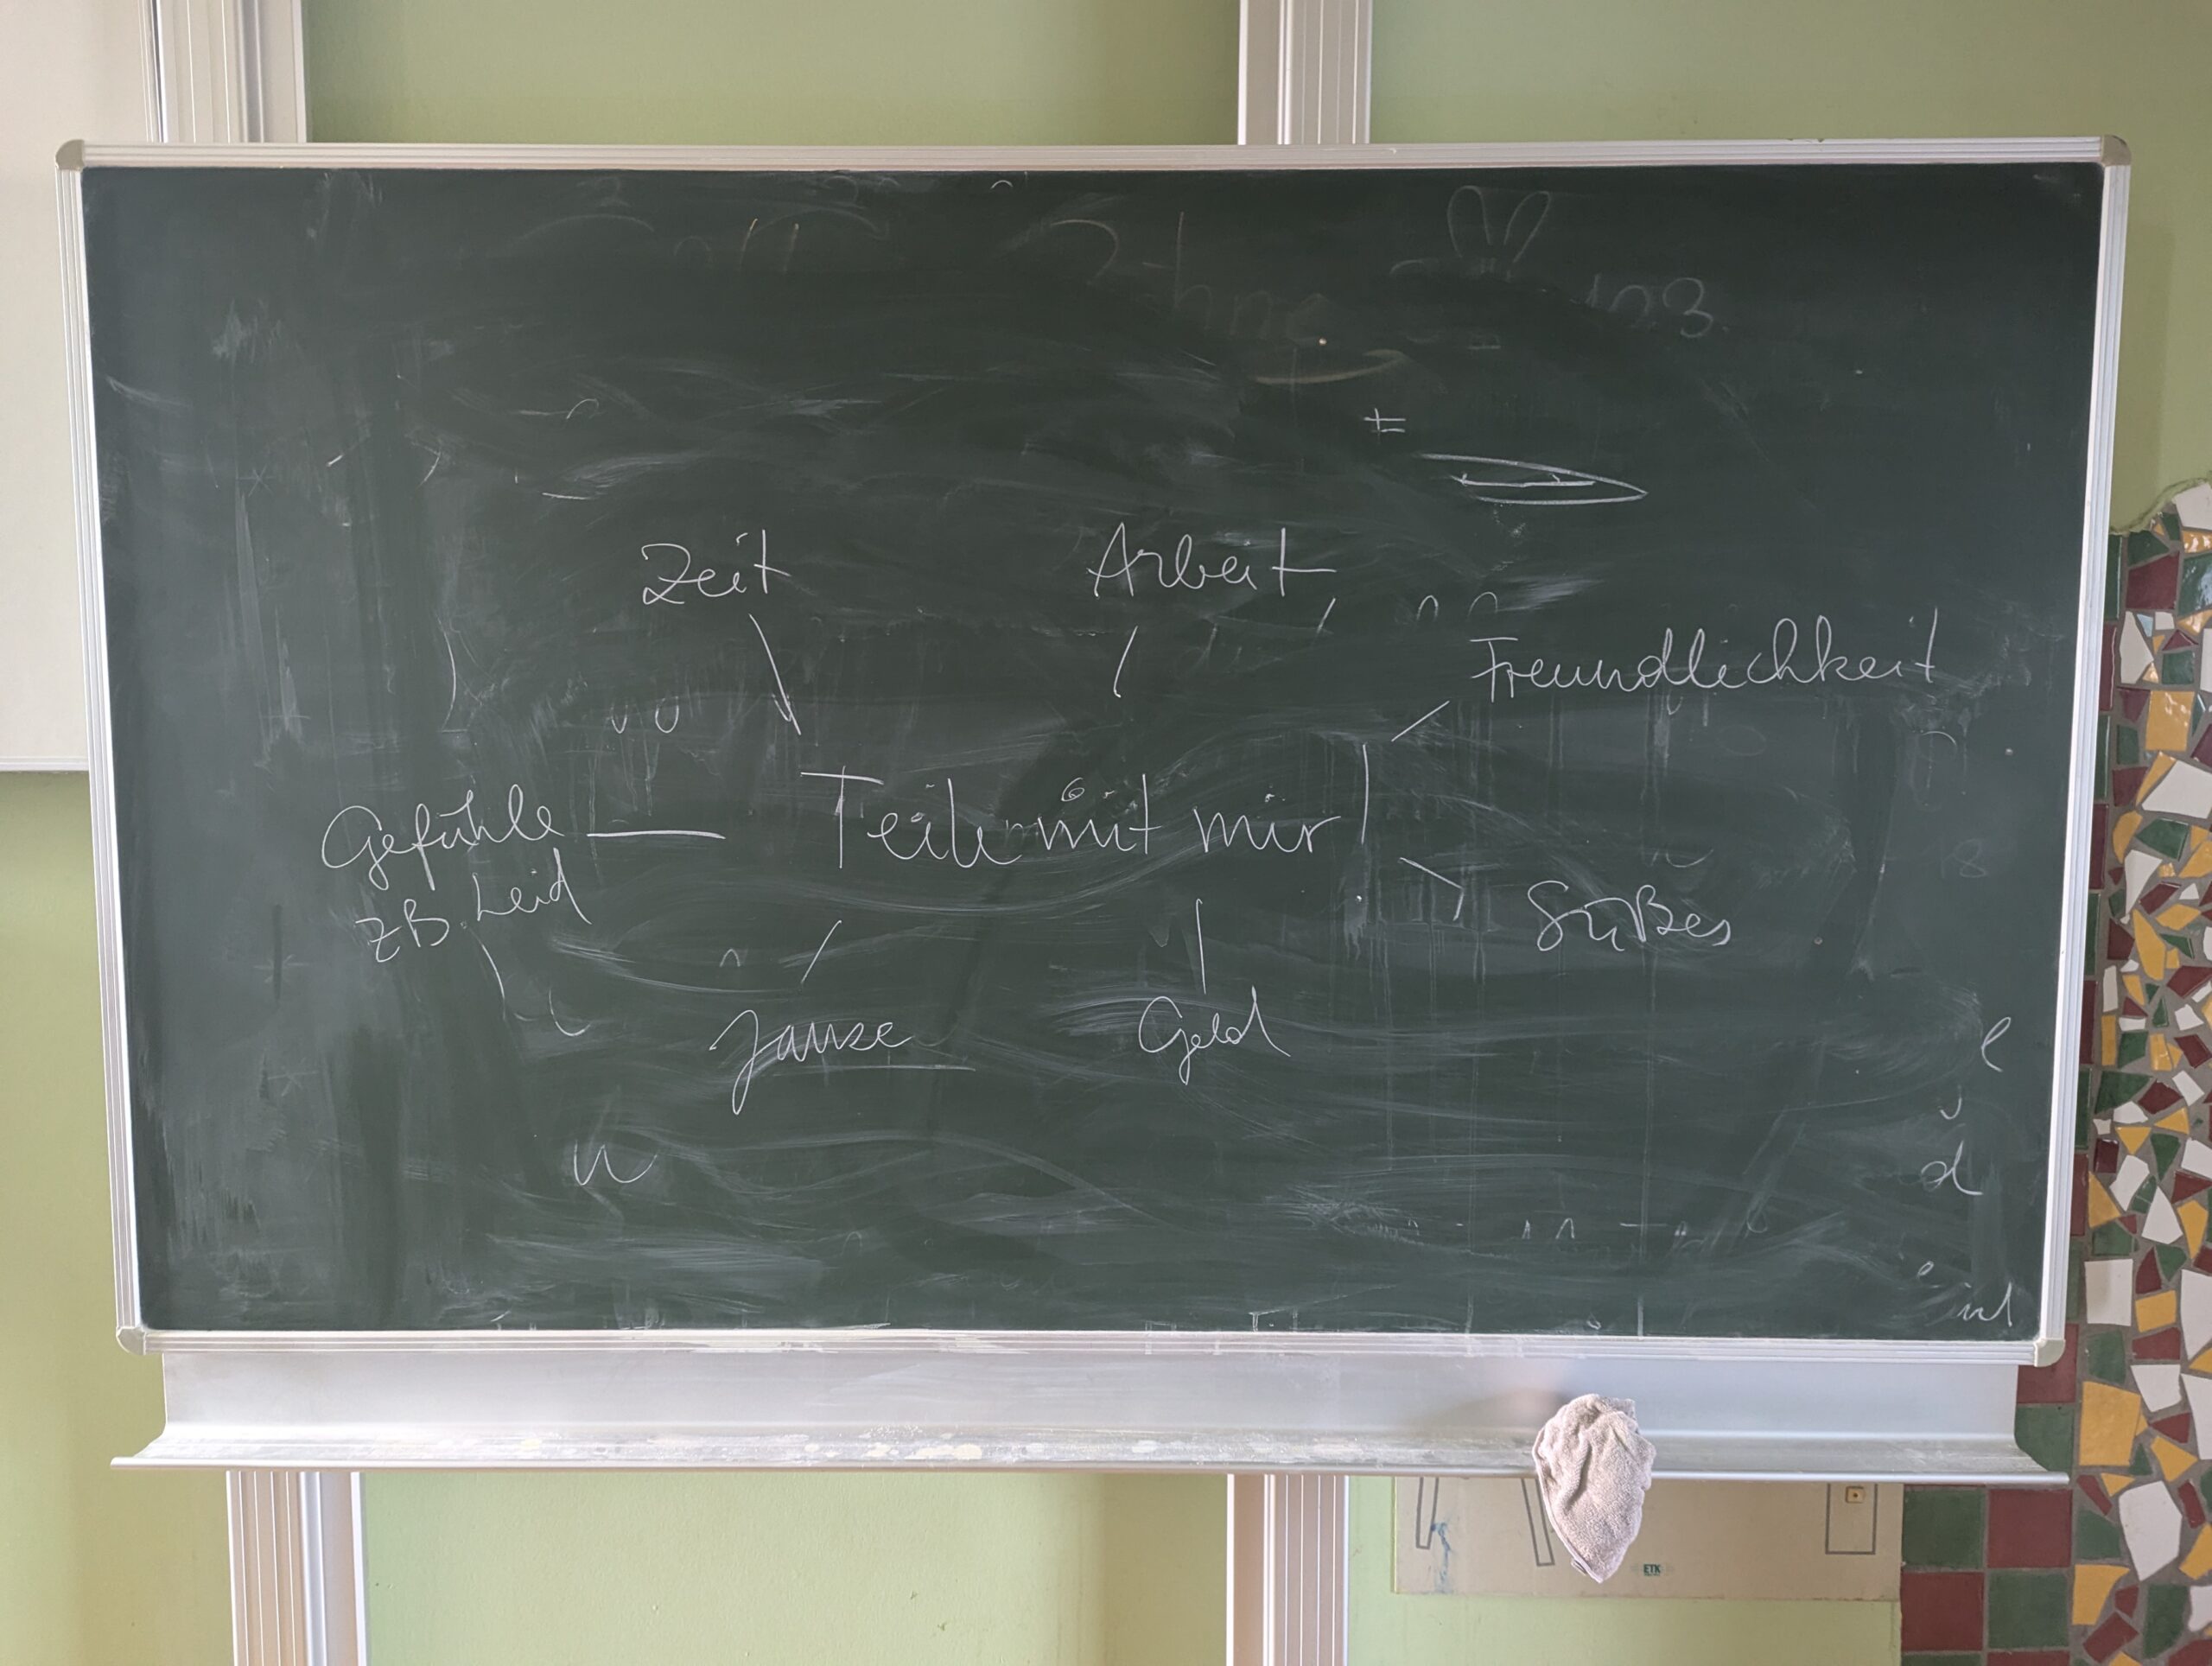 Zeit
Arbeit
Freundlichkeit
Teile mit mir!
Gefühle
zB. Leid
Süßes
Jause
Geld
ETK